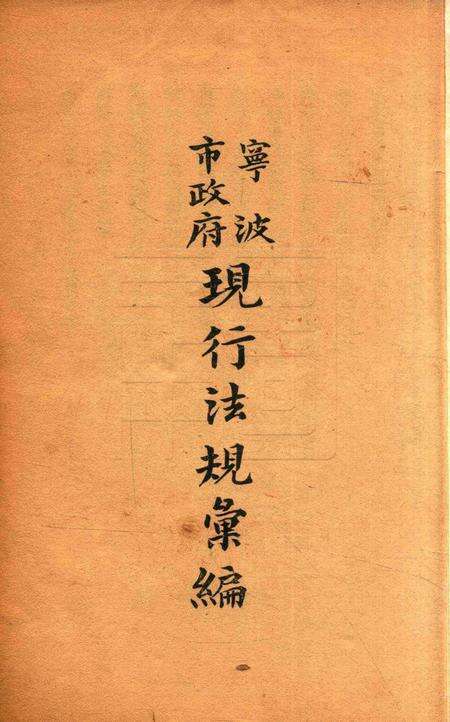 寧波
市政府
現行法規彙編